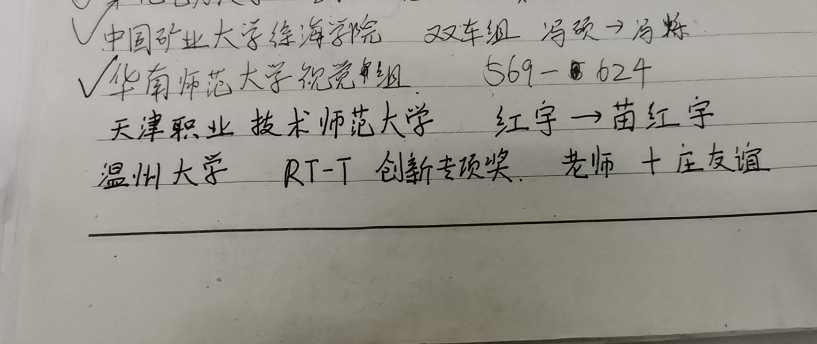 ✓中国矿业大学徐海学院 双车组 冯硕→冯烁
✓华南师范大学视觉组. 569-624
天津职业技术师范大学 红宇→苗红宇
温州大学 RT-T 创新专项奖. 老师+庄友谊